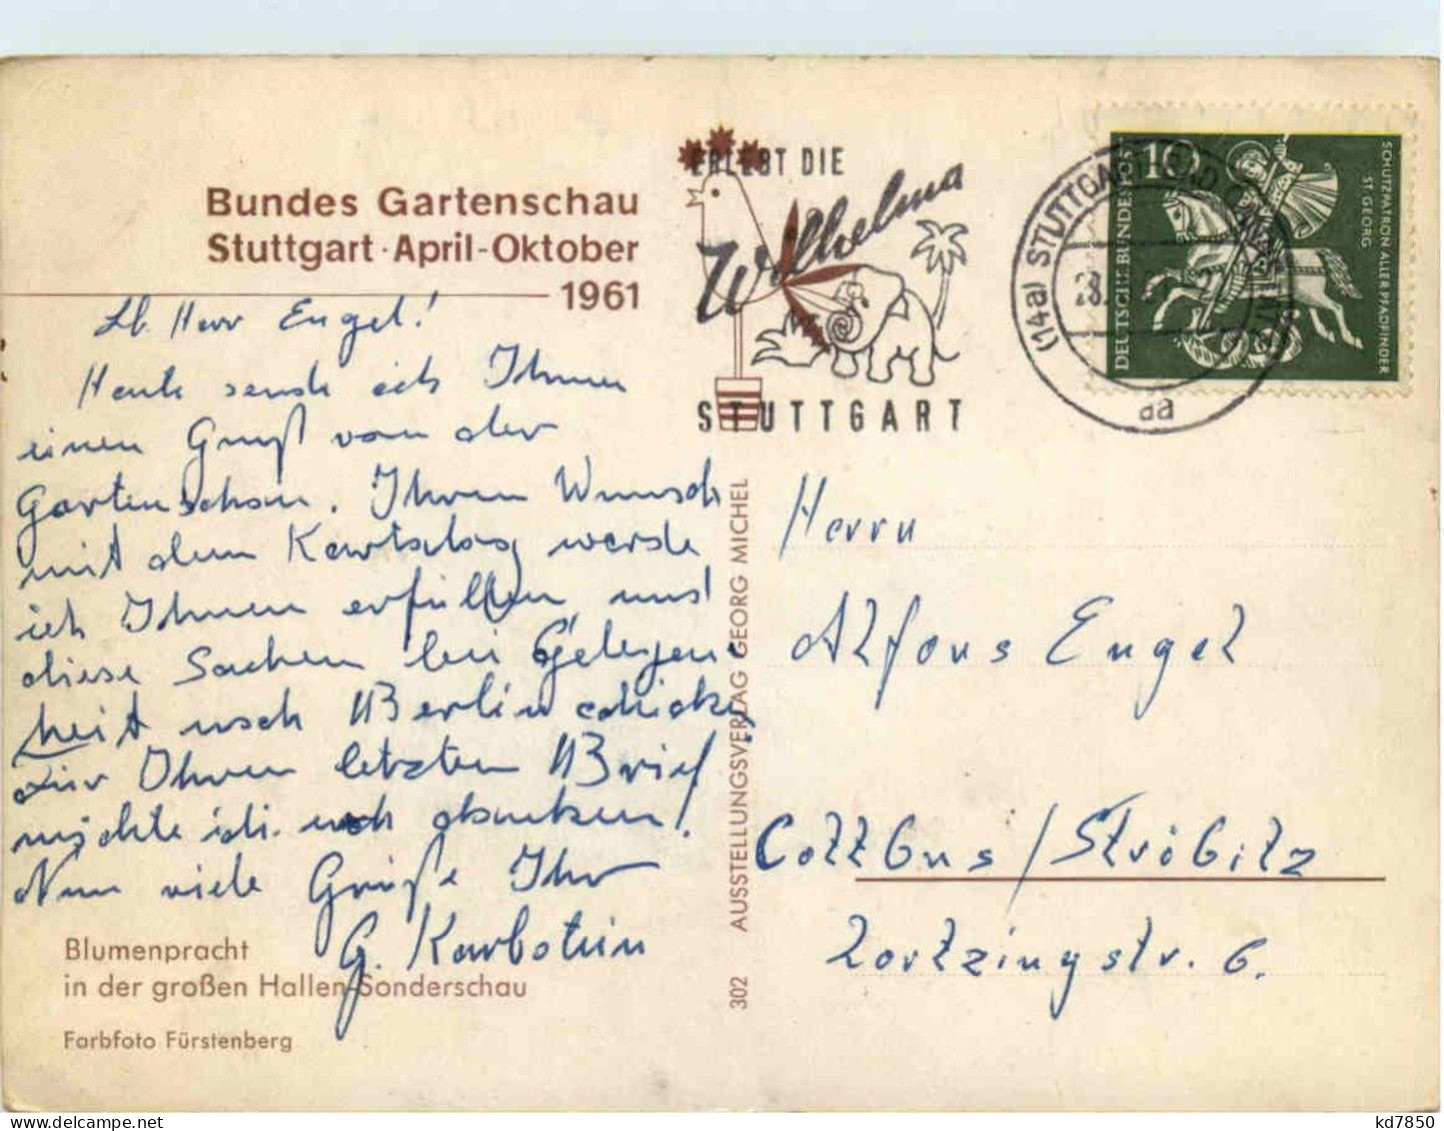 Bundes Gartenschau
Stuttgart · April-Oktober
1961
ERLEBT DIE
Wilhelma
STUTTGART
(14a) STUTTGART-BAD CANNSTATT
28.
aa
10
DEUTSCHE BUNDESPOST
SCHUTZPATRON ALLER PFADFINDER
ST. GEORG
Lb. Herr Engel!
Heute sende ich Ihnen
einen Gruß von der
Gartenschau. Ihren Wunsch
mit dem
werde
ich Ihnen erfüllen und
diese Sachen bei Gelegen-
heit nach Berlin schicken
Für Ihren letzten Brief
möchte ich noch danken!
Nun viele Grüße Ihr
G.
Blumenpracht
in der großen Hallen-Sonderschau
Farbfoto Fürstenberg
302 AUSSTELLUNGSVERLAG GEORG MICHEL
Herrn
Alfons Engel
Cottbus / Ströbitz
Lortzingstr. 6.
kd7850